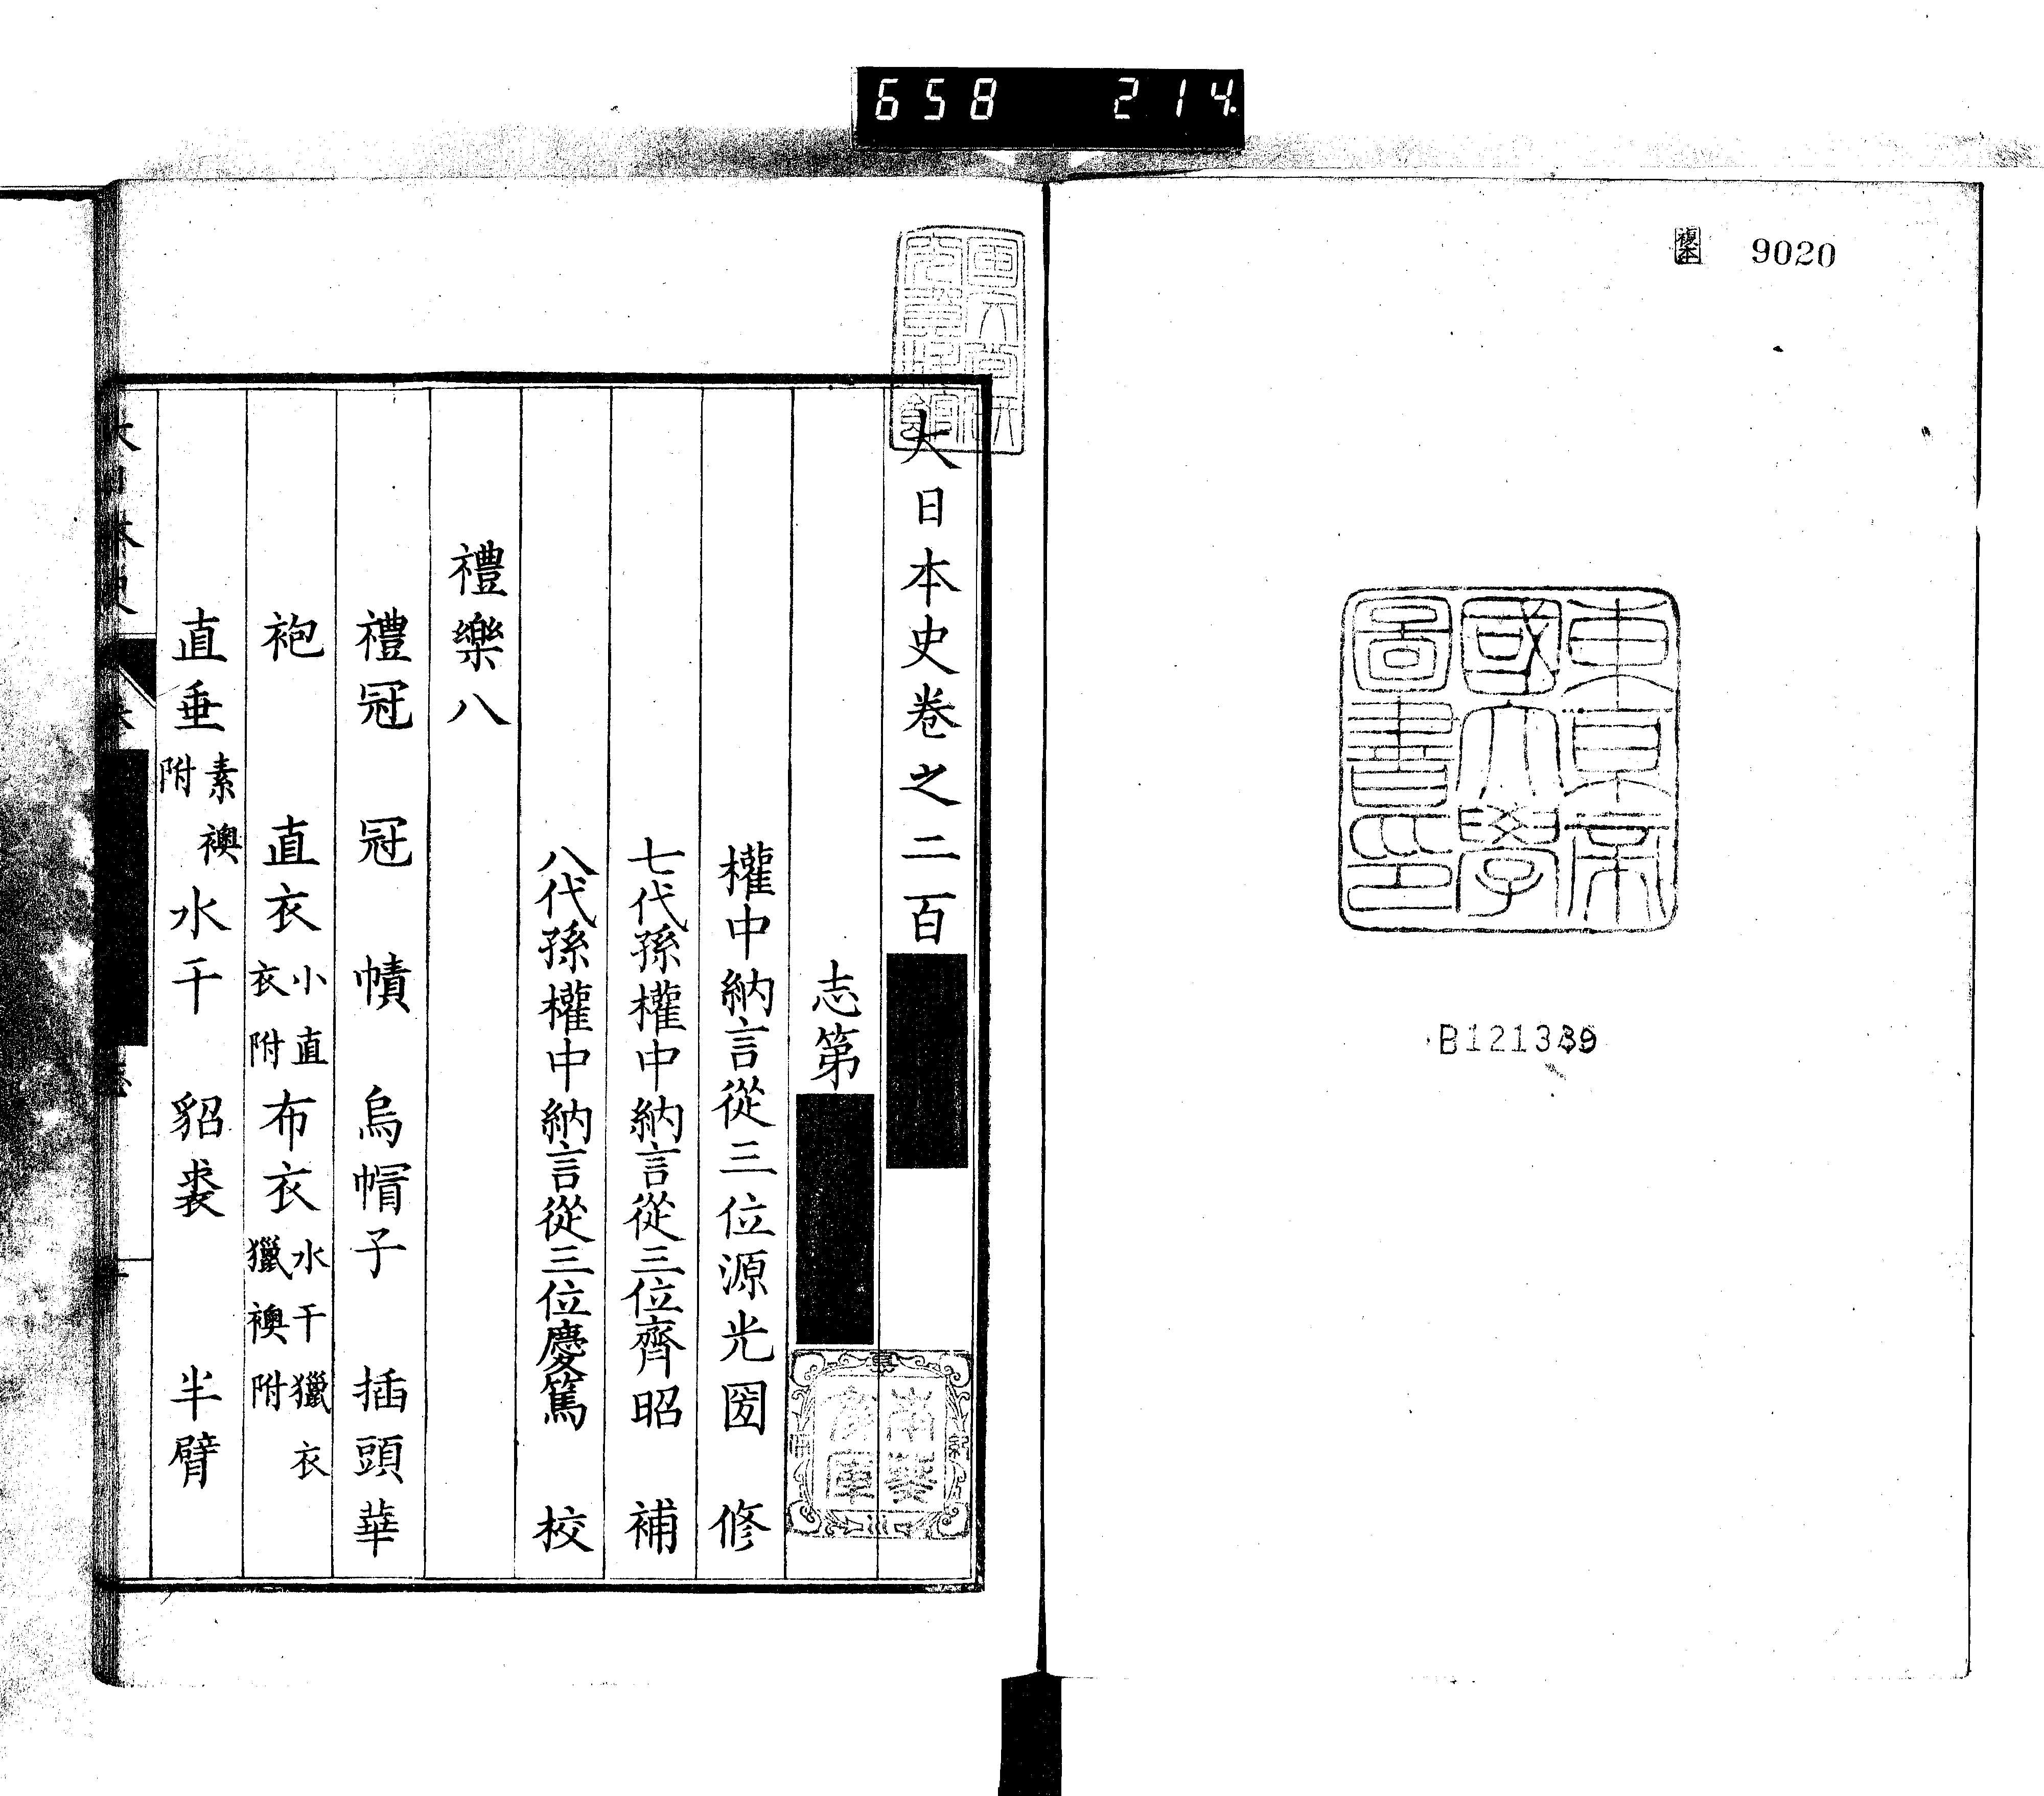 658 214
複本 9020
東京帝
國大學
圖書印
B121389
大日本史卷之二百
志第
權中納言從三位源光圀 修
七代孫權中納言從三位齊昭 補
八代孫權中納言從三位慶篤 校
禮樂八
禮冠 冠 幘 烏帽子 插頭華
袍 直衣 小直衣附 布衣 水干獵衣獵襖附
直垂 素襖附 水干 貂裘 半臂
南葵
文庫